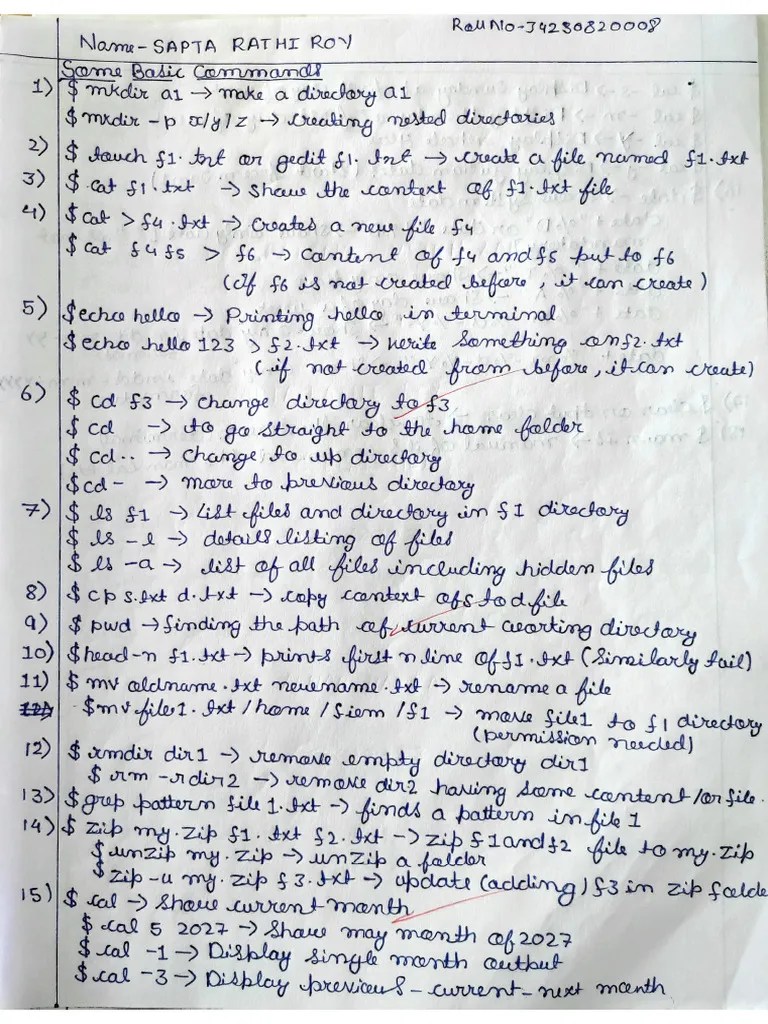 Roll No-34230820008
Name-SAPTA RATHI ROY
Some Basic Commands
1) $ mkdir a1 → make a directory a1
$ mkdir -p x/y/z → creating nested directories
2) $ touch f1.txt or gedit f1.txt → create a file named f1.txt
3) $ cat f1.txt → show the context of f1.txt file
4) $ cat > f4.txt → creates a new file f4
$ cat f4 f5 > f6 → content of f4 and f5 put to f6
(if f6 is not created before, it can create)
5) $ echo hello → Printing hello in terminal
$ echo hello 123 > f2.txt → write something on f2.txt
(if not created from before, it can create)
6) $ cd f3 → change directory to f3
$ cd → to go straight to the home folder
$ cd.. → change to up directory
$ cd - → move to previous directory
7) $ ls f1 → list files and directory in f1 directory
$ ls -l → details listing of files
$ ls -a → list of all files including hidden files
8) $ cp s.txt d.txt → copy context of s to d file
9) $ pwd → finding the path of current working directory
10) $ head -n f1.txt → prints first n line of f1.txt (Similarly tail)
11) $ mv oldname.txt newname.txt → rename a file
$ mv file1.txt /home/fiem/f1 → move file1 to f1 directory
(permission needed)
12) $ rmdir dir1 → remove empty directory dir1
$ rm -r dir2 → remove dir2 having some content/or file.
13) $ grep pattern file1.txt → finds a pattern in file 1
14) $ zip my.zip f1.txt f2.txt → zip f1 and f2 file to my.zip
$ unzip my.zip → unzip a folder
$ zip -u my.zip f3.txt → update (adding) f3 in zip folde
15) $ cal → Show current month
$ cal 5 2027 → Show may month of 2027
$ cal -1 → Display single month output
$ cal -3 → Display previous-current-next month